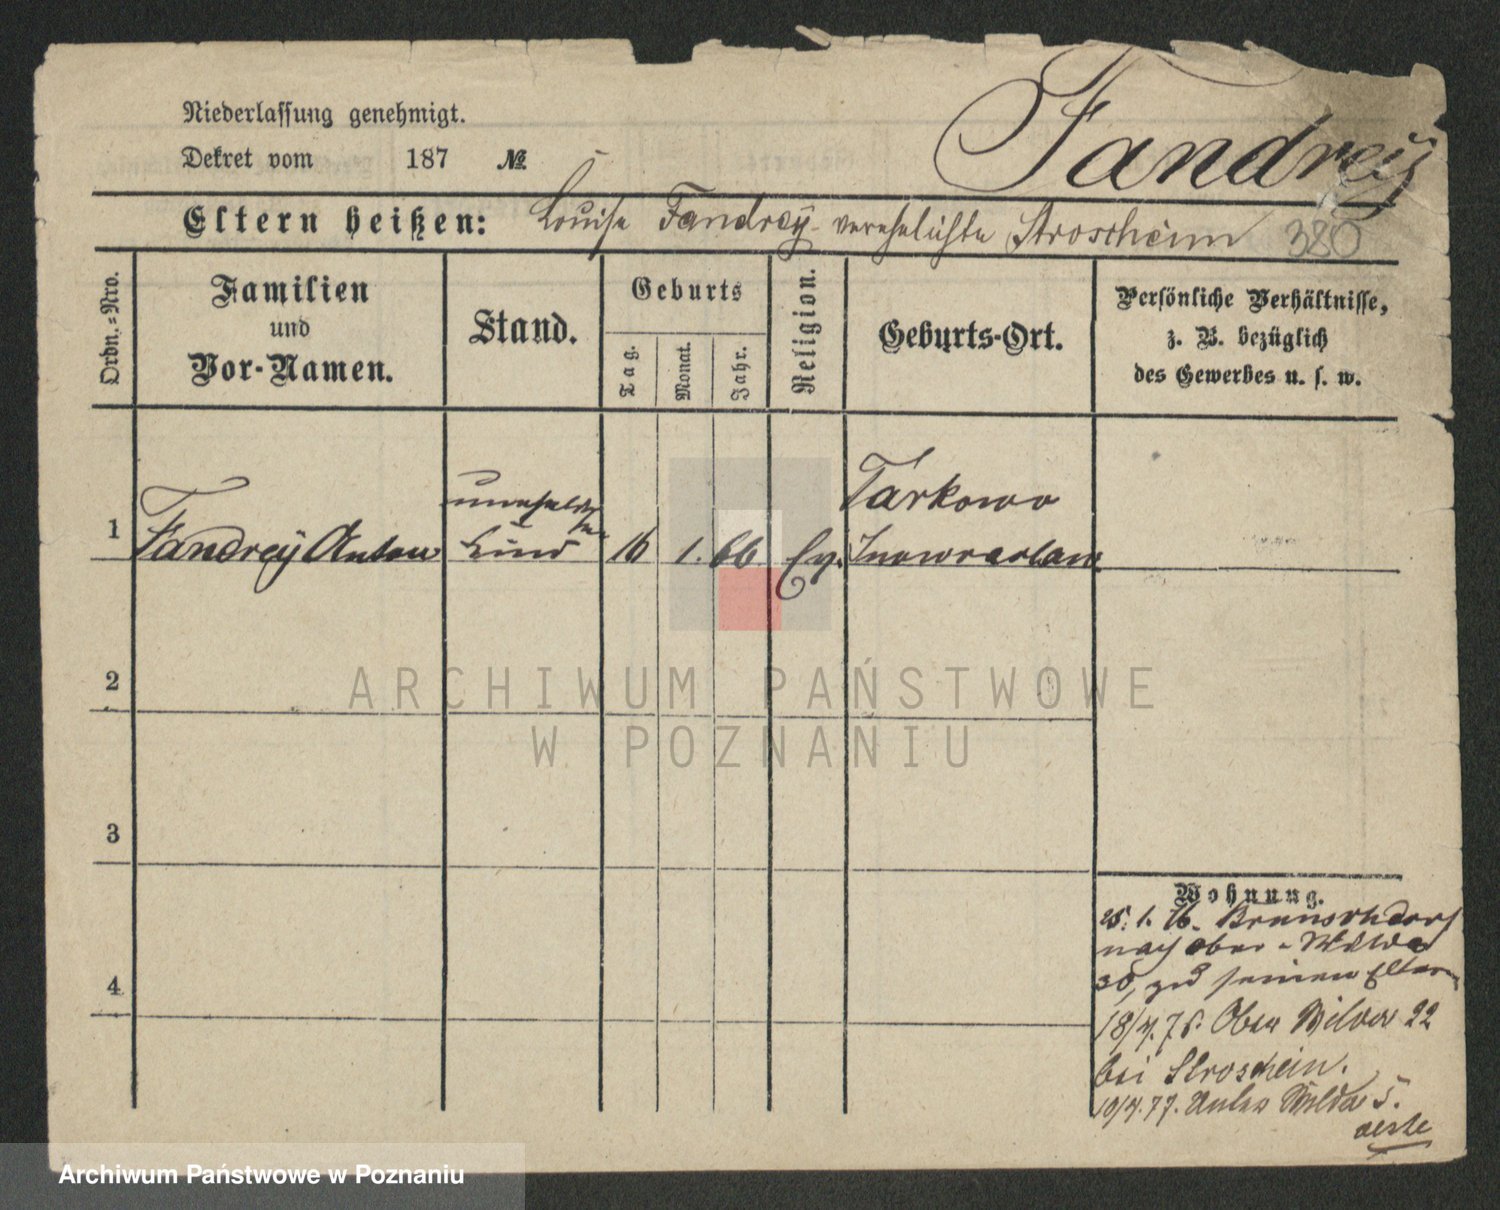 Niederlassung genehmigt.
Dekret vom 187 №
Fandrey
Eltern heißen: Louise Fandrey verehelichte Stroschein 380
Ordn.=Nro.
Familien
und
Vor-Namen.
Stand.
Geburts
Tag.
Monat.
Jahr.
Religion.
Geburts-Ort.
Persönliche Verhältnisse,
z. B. bezüglich
des Gewerbes u. s. w.
1
Fandrey Anton
Kind
16 1. 66
Ev.
Tarkowo
Inowraclaw
2
3
4
Wohnung.
25. 1. 76.
nach Ober-Wilda
30, zu seinen Eltern
18/4. 75. Ober Wilda 22
bei Stroschein.
10/4. 77. Unter Wilda 5.
ARCHIWUM PAŃSTWOWE
W POZNANIU
Archiwum Państwowe w Poznaniu